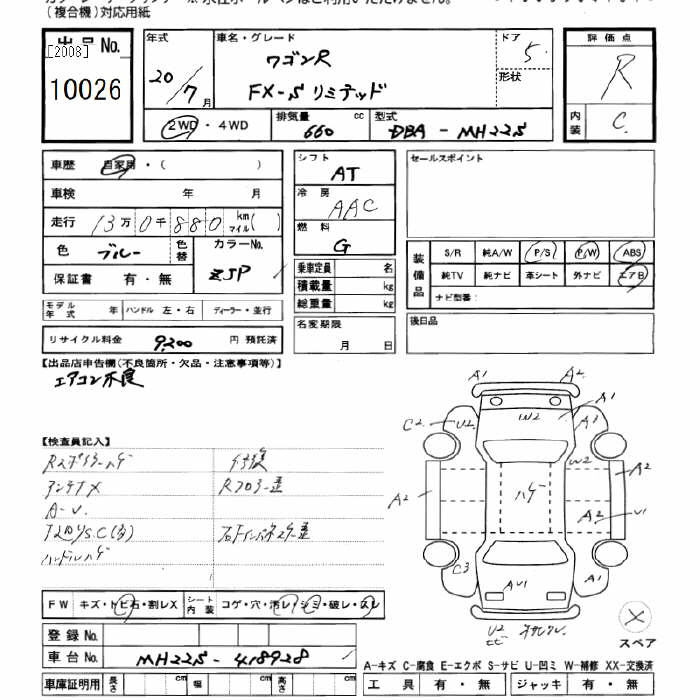 (複合機)対応用紙
出品No.
[2008]
10026
年式
20/7月
車名・グレード
ワゴンR
FX-S リミテッド
ドア
5
形状
評価点
R
内装
C
2WD・4WD
排気量
660 cc
型式
DBA - MH22S
車歴 自家用・( )
車検 年 月
走行 13万0千880 km マイル( )
色 ブルー 色替
カラーNo.
ZJP
保証書 有・無
モデル年式 年 ハンドル 左・右 ディーラー・並行
リサイクル料金 9,200 円 預託済
シフト
AT
冷房
AAC
燃料
G
乗車定員 名
積載量 kg
総重量 kg
名変期限
月 日
セールスポイント
装備品
S/R 純A/W P/S P/W ABS
純TV 純ナビ 革シート 外ナビ エアB
ナビ型番:
後日品
【出品店申告欄(不良箇所・欠品・注意事項等)】
エアコン不良
【検査員記入】
Rスポイラーハゲ
アンテナX
A-U.
ハンドルハゲ
A1 A2
A1
W2
C2 U2 A3
W2
A2 ハゲ A2
A2 U1
C3 AU1 A1
U2
スペア
FW キズ・トビ石・割レX
シート内装 コゲ・穴・汚レ・シミ・破レ・スレ
登録No.
車台No. MH22S-418928
車庫証明用 長さ cm 幅 cm 高さ cm
A-キズ C-腐食 E-エクボ S-サビ U-凹ミ W-補修 XX-交換済
工具 有・無 ジャッキ 有・無